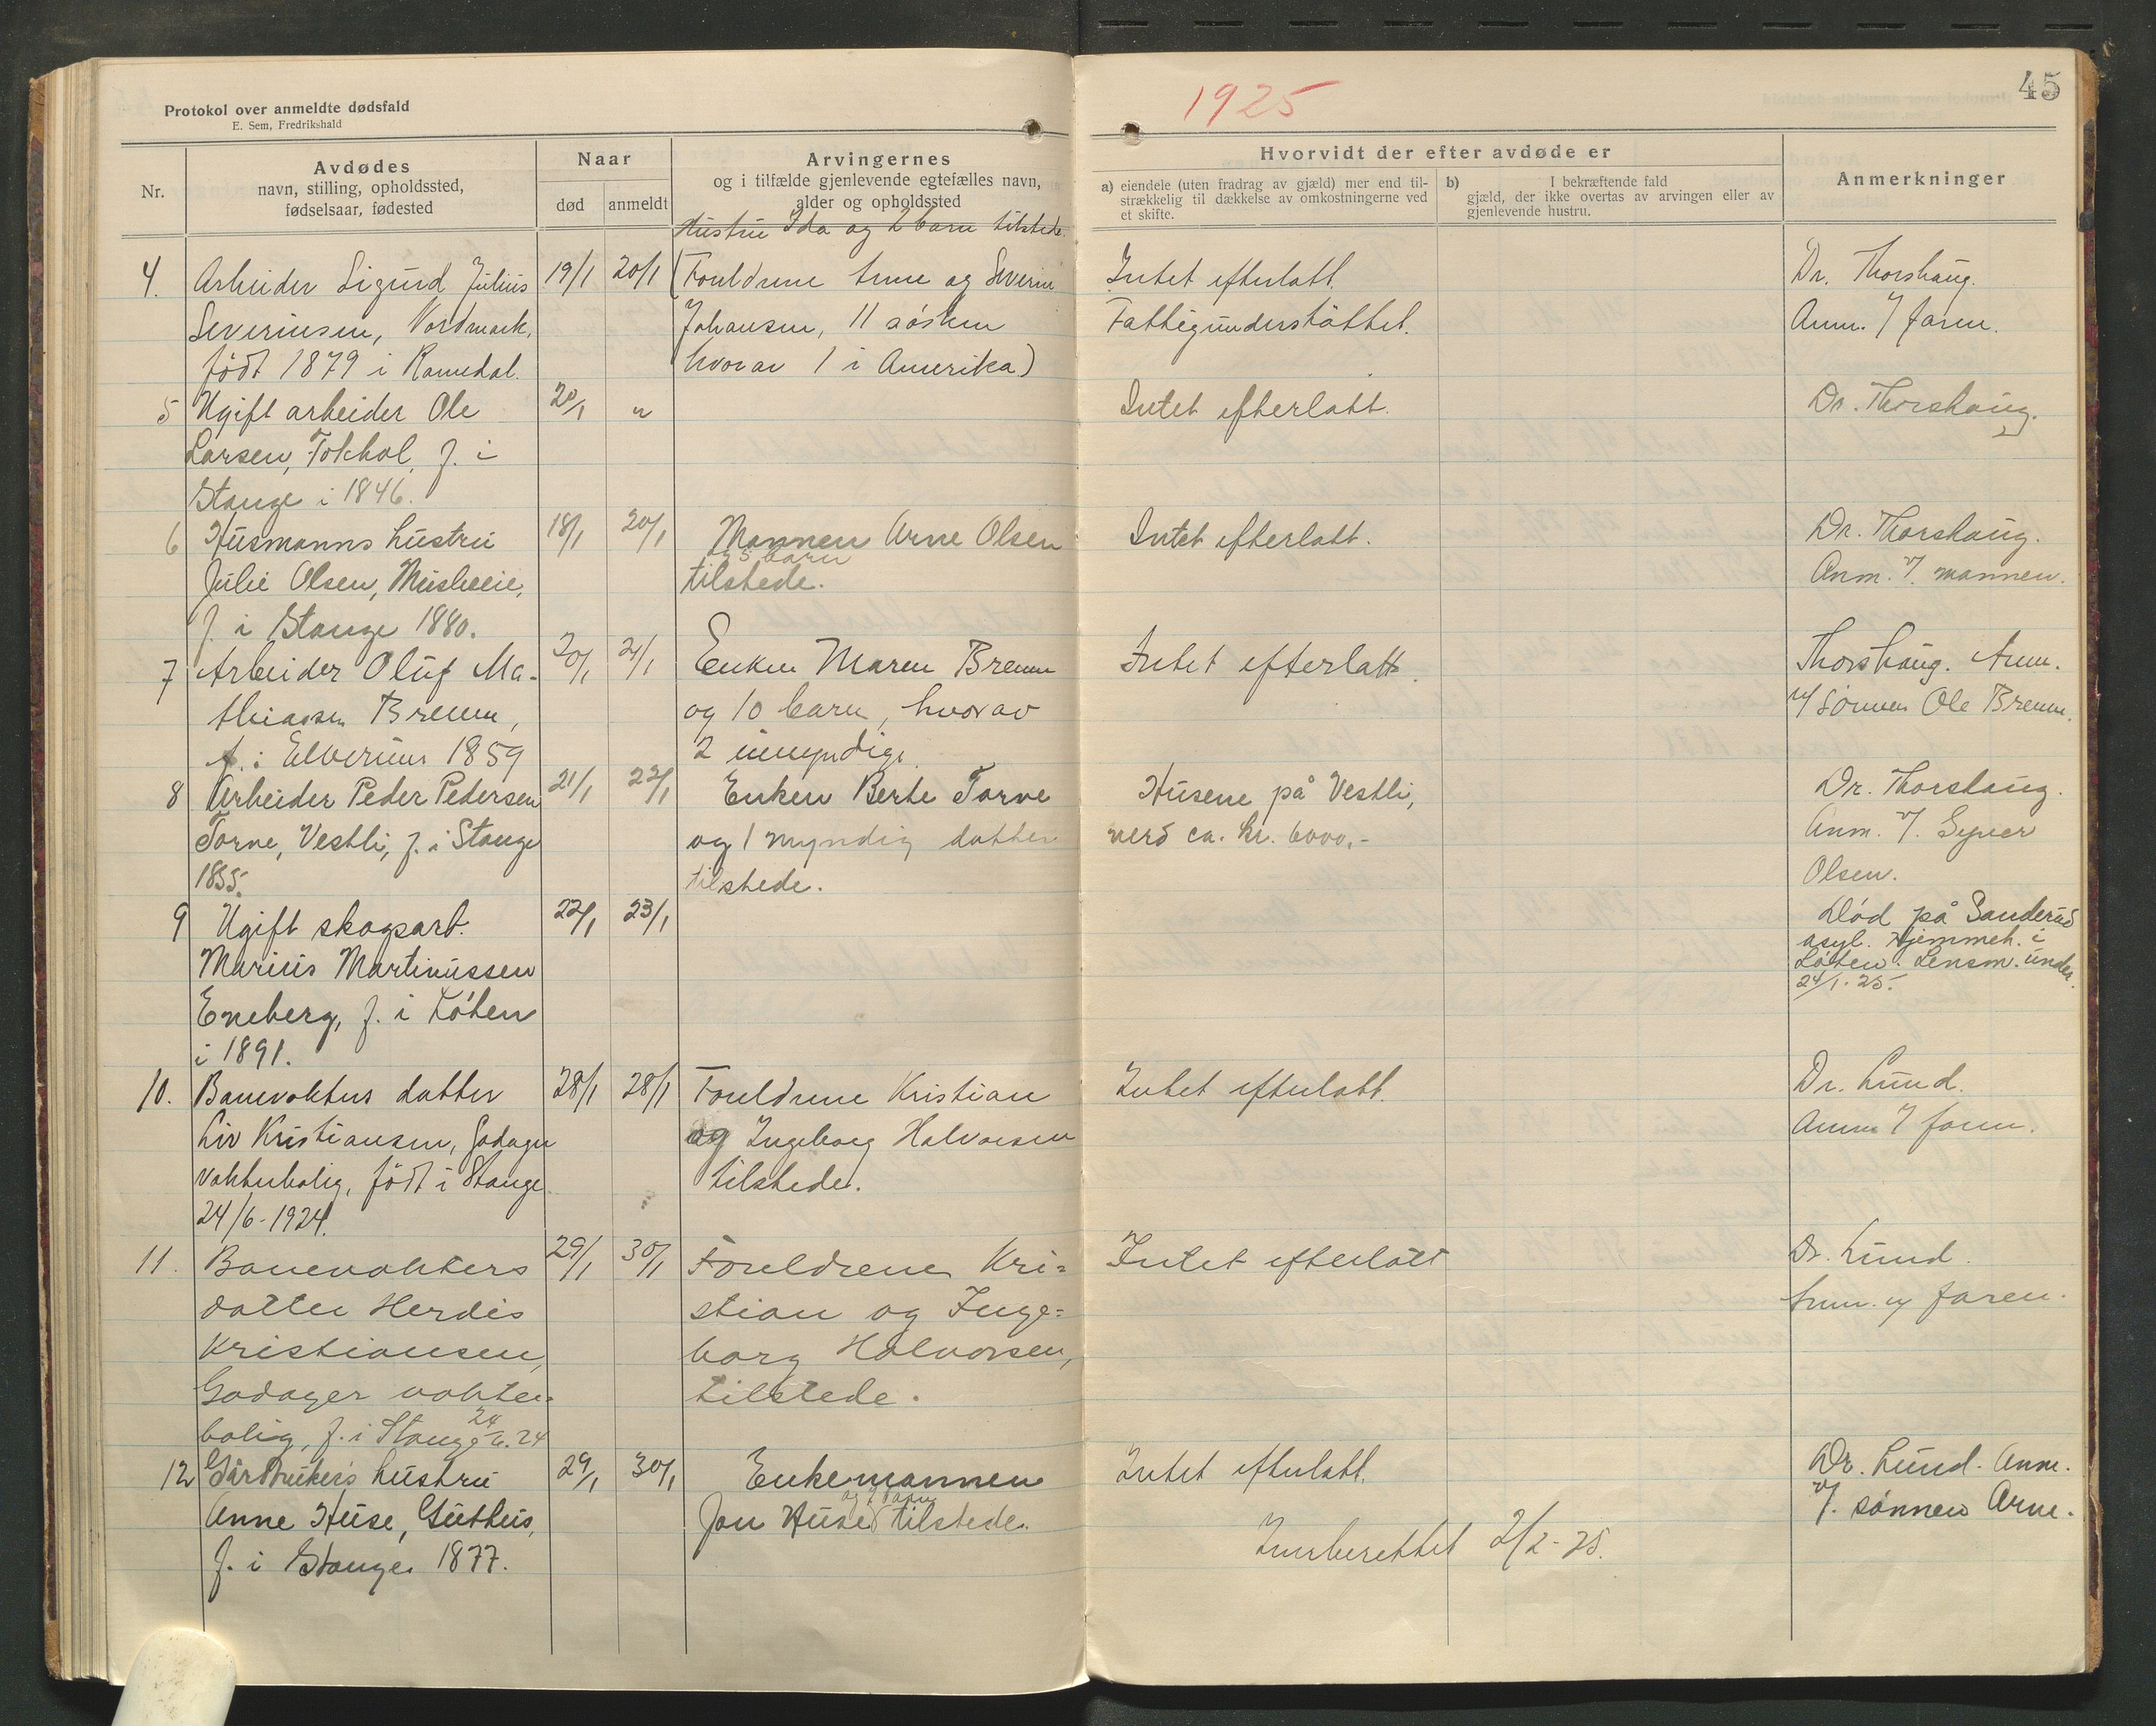 Protokol over anmeldte dødsfald
E. Sem, Fredrikshald
1925
45
Nr.
Avdødes
navn, stilling, opholdssted,
fødselsaar, fødested
Naar
død
anmeldt
Arvingernes
og i tilfælde gjenlevende egtefælles navn,
alder og opholdssted
Hvorvidt der efter avdøde er
a) eiendele (uten fradrag av gjæld) mer end til-
strækkelig til dækkelse av omkostningerne ved
et skifte.
b) I bekræftende fald
gjæld, der ikke overtas av arvingen eller av
gjenlevende hustru.
Anmerkninger
Hustru Ida og 2 barn tilstede.
4. Arbeider Sigurd Julius 19/1 20/1 (Foreldrene Anne og Severin Intet efterlatt. Dr. Thorshaug.
Severinsen, Nordmark, Johansen, 11 søsken Fattigunderstøttet. Anm. v/ faren.
født 1879 i Romedal. hvorav 1 i Amerika)
5 Ugift arbeider Ole 20/1 " Intet efterlatt. Dr. Thorshaug.
Larsen, Tokhol, f. i
Stange i 1846.
6 Husmanns hustru 18/1 20/1 Mannen Arne Olsen Intet efterlatt. Dr. Thorshaug.
og 5 barn
Julie Olsen, tilstede. Anm. v/. mannen.
f. i Stange 1880.
7 Arbeider Oluf Ma- 20/1 21/1 Enken Maren Brenn Intet efterlatt. Thorshaug. Anm.
thiassen Brenn, og 10 barn, hvorav v/ sønnen Ole Brenn.
f. i Elverum 1859 2 umyndige.
8 Arbeider Peder Pedersen 21/1 22/1 Enken Berte Torve Husene på Vestli, Dr. Thorshaug.
Torve, Vestli, f. i Stange og 1 myndig datter verd ca. kr. 6000,- Anm. v/. Syver
1855. tilstede. Olsen.
9 Ugift skogsarb. 22/1 23/1 Død på Sanderud
Marius Martinussen asyl. Hjemmeh. i
Eneberg, f. i Løten Løten. Lensm. under.
i 1891. 24/1-25.
10. Banevokters datter 28/1 28/1 Foreldrene Kristian Intet efterlatt. Dr. Lund.
Liv Kristiansen, Godager og Ingeborg Halvorsen Anm v/ faren.
vokterbolig, født i Stange tilstede.
24/6-1924.
11. Banevokters 29/1 30/1 Foreldrene Kri= Intet efterlatt Dr. Lund.
datter Herdis stian og Inge= Anm. v/ faren.
Kristiansen, borg Halvorsen,
Godager vokter= tilstede.
bolig, f. i Stange 24/6.24
12 Gårdbrukers hustru 29/1 30/1 Enkemannen Intet efterlatt. Dr. Lund. Anm.
og 2 barn
Anne Huse, Guthus, Jon Huse tilstede. v/. sønnen Arne.
f. i Stange 1877.
Innberettet 2/2-25.